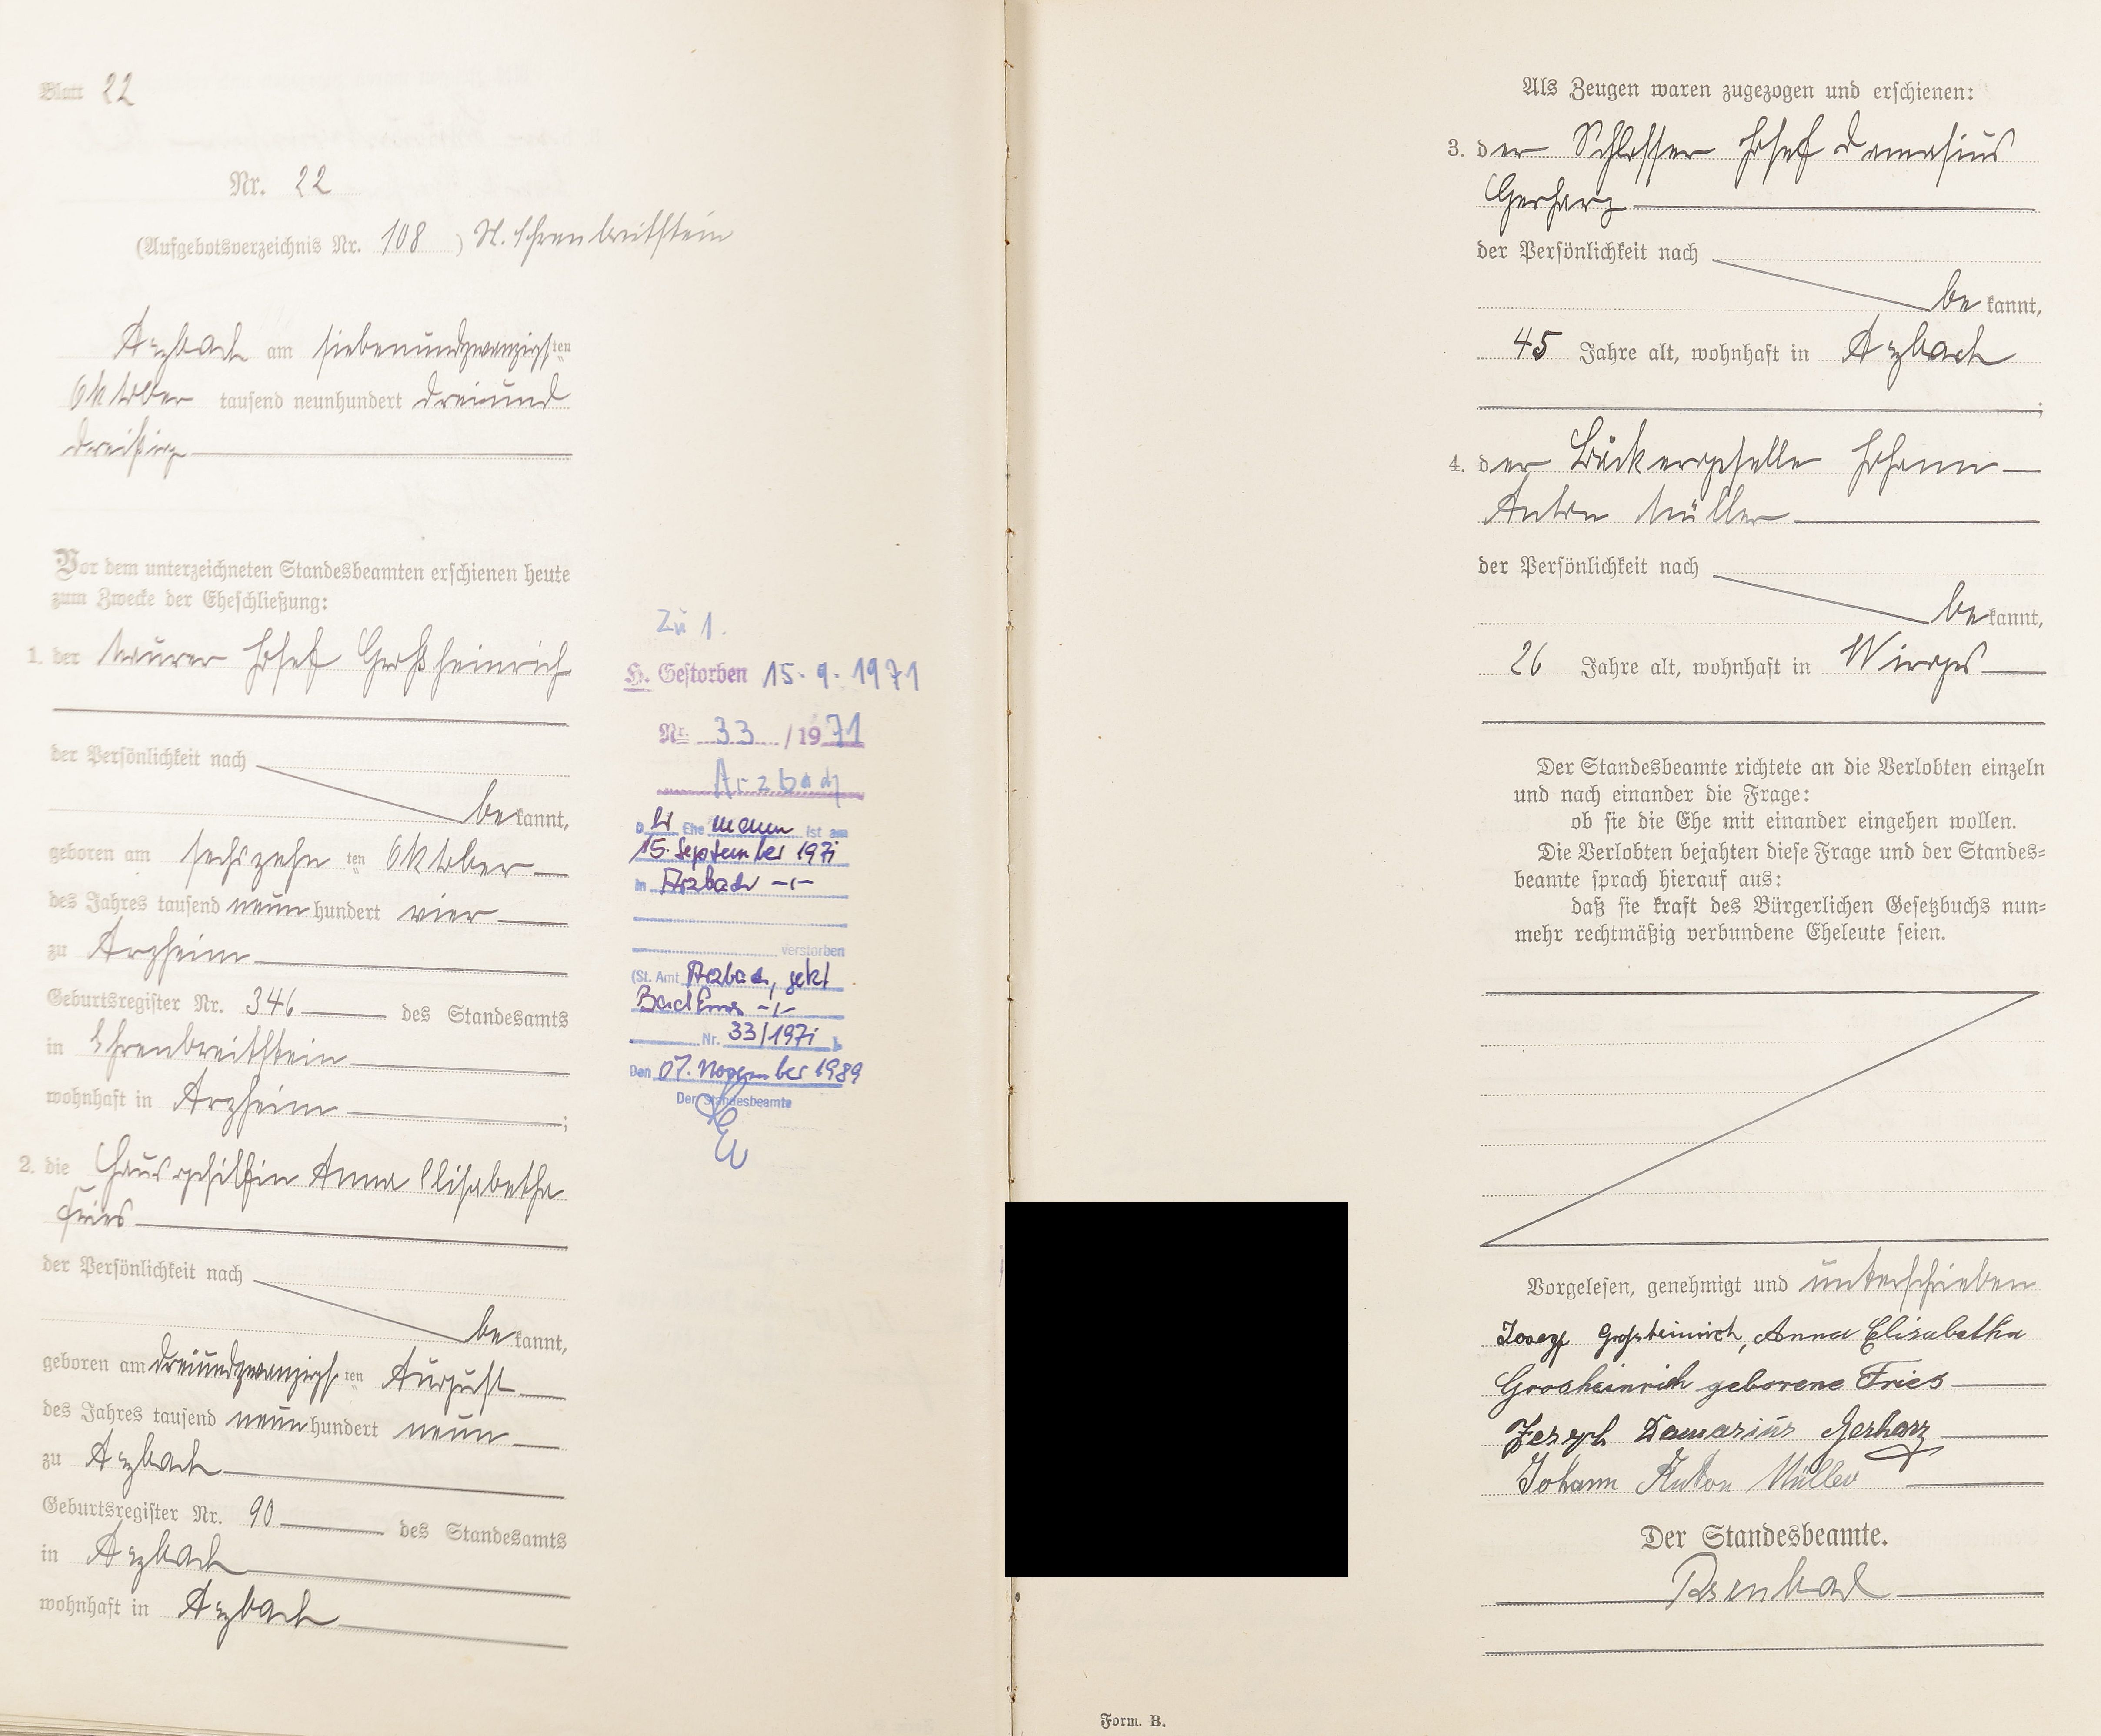 Blatt 22
Nr. 22
(Aufgebotsverzeichnis Nr. 108) St. Ehrenbreitstein
Arzbach am siebenundzwanzigsten
Oktober tausend neunhundert dreiund
dreißig
Vor dem unterzeichneten Standesbeamten erschienen heute
zum Zwecke der Eheschließung:
1. der Maurer Josef Großheinrich
der Persönlichkeit nach
bekannt,
geboren am sechszehnten Oktober
des Jahres tausend neunhundert vier
zu Arzheim
Geburtsregister Nr. 346 des Standesamts
in Ehrenbreitstein
wohnhaft in Arzheim;
2. die Hausgehilfin Anna Elisabetha
Fries
der Persönlichkeit nach
bekannt,
geboren am dreiundzwanzigsten August
des Jahres tausend neunhundert neun
zu Arzbach
Geburtsregister Nr. 90 des Standesamts
in Arzbach
wohnhaft in Arzbach
Zu 1.
H. Gestorben 15.9.1971
Nr. 33/1971
Arzbach
Der Ehemann ist am
15. September 1971
in Arzbach -,-
verstorben
(St. Amt Arzbach, jetzt
Bad Ems -,-
Nr. 33/1971)
Den 07. November 1989
Der Standesbeamte
Als Zeugen waren zugezogen und erschienen:
3. der Schlosser Josef Damasius
Gerharz
der Persönlichkeit nach
bekannt,
45 Jahre alt, wohnhaft in Arzbach
;
4. der Bäckergeselle Johann
Anton Müller
der Persönlichkeit nach
bekannt,
26 Jahre alt, wohnhaft in Wirges
Der Standesbeamte richtete an die Verlobten einzeln
und nach einander die Frage:
ob sie die Ehe mit einander eingehen wollen.
Die Verlobten bejahten diese Frage und der Standes=
beamte sprach hierauf aus:
daß sie kraft des Bürgerlichen Gesetzbuchs nun=
mehr rechtmäßig verbundene Eheleute seien.
Vorgelesen, genehmigt und unterschrieben
Josef Großheinrich, Anna Elisabetha
Grosheinrich geborene Fries
Joseph Damasius Gerharz
Johann Anton Müller
Der Standesbeamte.
Form. B.